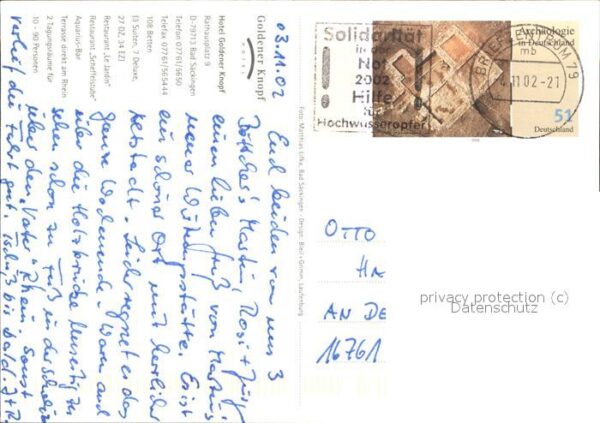 Goldener Knopf
Hotel Goldener Knopf
Rathausplatz 9
D-79713 Bad Säckingen
Telefon 07761/5650
Telefax 07761/565444
108 Betten
(3 Suiten, 7 Deluxe,
27 DZ, 34 EZ)
Restaurant „Le Jardin"
Restaurant „Scheffelstube"
Aquarius-Bar
Terrasse direkt am Rhein
2 Tagungsräume für
10 - 90 Personen
03.11.02
Euch beiden von uns 3
Martin, Rosi + 
einen lieben Gruß von Martins
neuer Wirkungsstätte. Es ist
ein schöner Ort mit herrlicher
Altstadt. Leider regnet es das
ganze Wochenende. Waren auch
über die Holzbrücke
schon zu Fuß in der Schweiz
über den „Vater" Rhein. Sonst
verlief die Fahrt gut. Tschüß bis bald. J+R.
Foto: Matthias Lifka, Bad Säckingen · Design: Bleil+Grimm, Laufenburg
Solidarität
in der
Not
2002
Hilfe
für
Hochwasseropfer
Archäologie
in Deutschland
mb
.11.02-21
79
51
Deutschland
OTTO
HA
AN DE
16761
privacy protection (c)
Datenschutz